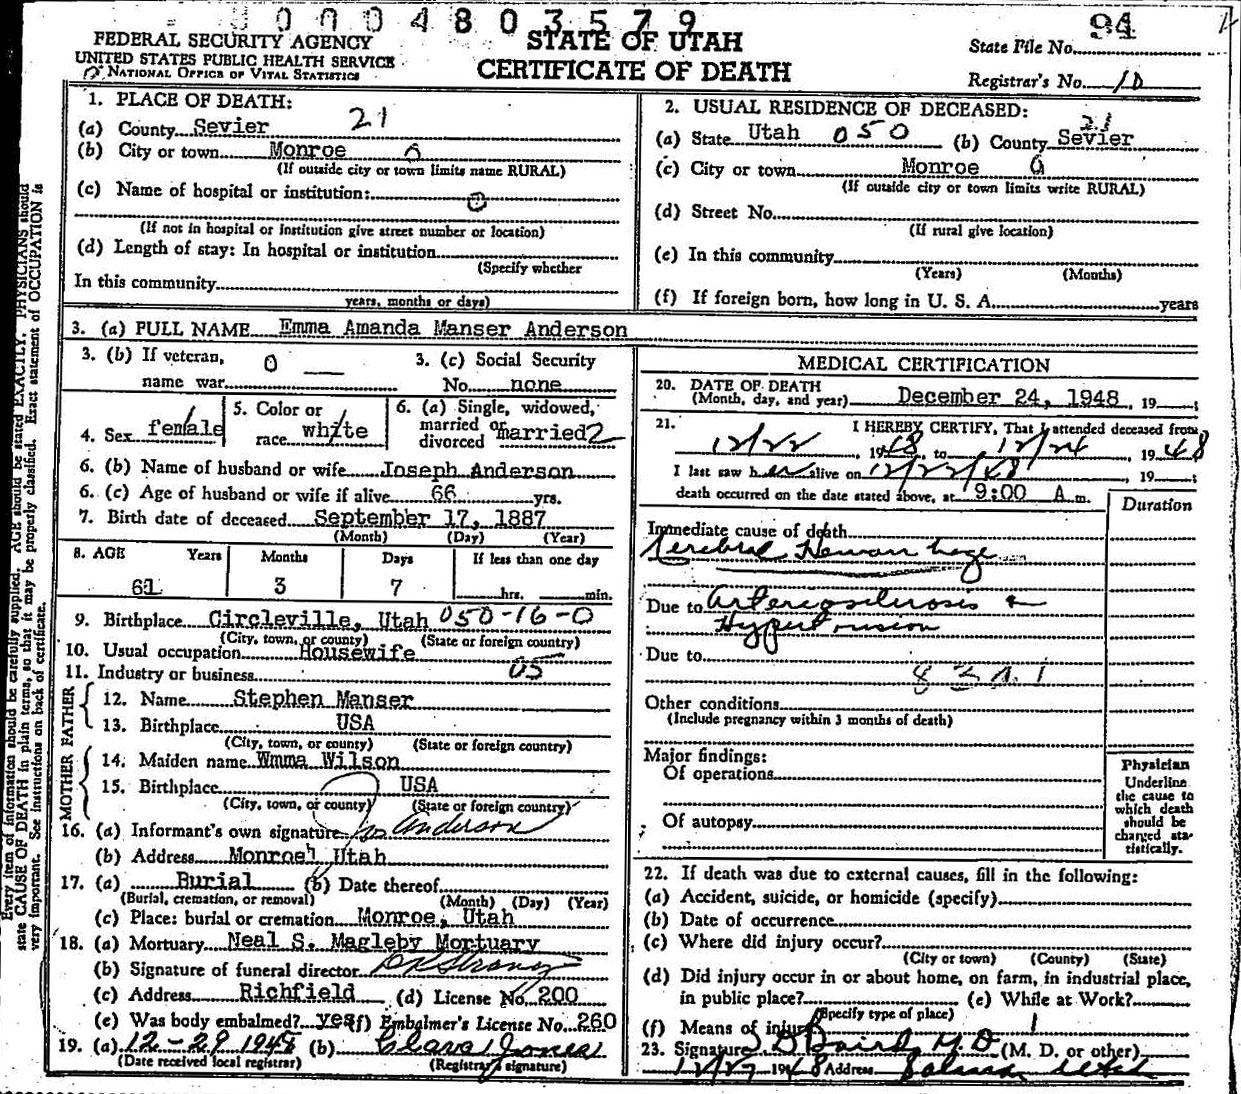 0 0 0 4 8 0 3 5 7 9
94
FEDERAL SECURITY AGENCY
UNITED STATES PUBLIC HEALTH SERVICE
NATIONAL OFFICE OF VITAL STATISTICS
STATE OF UTAH
CERTIFICATE OF DEATH
State File No.
Registrar's No. 10
Every item of information should be carefully supplied. AGE should be stated EXACTLY. PHYSICIANS should
state CAUSE OF DEATH in plain terms, so that it may be properly classified. Exact statement of OCCUPATION is
very important. See instructions on back of certificate.
1. PLACE OF DEATH:
(a) County Sevier 21
(b) City or town Monroe 0
(If outside city or town limits name RURAL)
(c) Name of hospital or institution: 0
(If not in hospital or institution give street number or location)
(d) Length of stay: In hospital or institution
(Specify whether
In this community
years, months or days)
2. USUAL RESIDENCE OF DECEASED:
(a) State Utah 050 (b) County Sevier 21
(c) City or town Monroe 0
(If outside city or town limits write RURAL)
(d) Street No.
(If rural give location)
(e) In this community
(Years) (Months)
(f) If foreign born, how long in U. S. A. years
3. (a) FULL NAME Emma Amanda Manser Anderson
3. (b) If veteran, 0
name war
3. (c) Social Security
No. none
4. Sex female
5. Color or
race white
6. (a) Single, widowed,
married or
divorced married 2
6. (b) Name of husband or wife Joseph Anderson
6. (c) Age of husband or wife if alive 66 yrs.
7. Birth date of deceased September 17, 1887
(Month) (Day) (Year)
8. AGE Years Months Days If less than one day
61 3 7 hrs. min.
9. Birthplace Circleville, Utah 050-16-0
(City, town, or county) (State or foreign country)
10. Usual occupation Housewife
11. Industry or business 05
FATHER
12. Name Stephen Manser
13. Birthplace USA
(City, town, or county) (State or foreign country)
MOTHER
14. Maiden name Wmma Wilson
15. Birthplace USA
(City, town, or county) (State or foreign country)
16. (a) Informant's own signature Anderson
(b) Address Monroe, Utah
17. (a) Burial (b) Date thereof
(Burial, cremation, or removal) (Month) (Day) (Year)
(c) Place: burial or cremation Monroe, Utah
18. (a) Mortuary Neal S. Magleby Mortuary
(b) Signature of funeral director
(c) Address Richfield (d) License No. 200
(e) Was body embalmed? yes (f) Embalmer's License No. 260
19. (a) 12-29 1948 (b) Clara Jones
(Date received local registrar) (Registrar's signature)
MEDICAL CERTIFICATION
20. DATE OF DEATH
(Month, day, and year) December 24, 1948, 19
21. I HEREBY CERTIFY, That I attended deceased from
12/22, 1948, to 12/24, 1948
I last saw her alive on 12/22/48, 19
death occurred on the date stated above, at 9:00 A m.
Duration
Immediate cause of death
Cerebral Hemorrhage
Due to Arteriosclerosis &
Hypertension
Due to
Other conditions
(Include pregnancy within 3 months of death)
Major findings:
Of operations
Of autopsy
Physician
Underline
the cause to
which death
should be
charged sta-
tistically.
22. If death was due to external causes, fill in the following:
(a) Accident, suicide, or homicide (specify)
(b) Date of occurrence
(c) Where did injury occur?
(City or town) (County) (State)
(d) Did injury occur in or about home, on farm, in industrial place,
in public place? (e) While at Work?
(Specify type of place)
(f) Means of injury
23. Signature Baird M D (M. D. or other)
12/27 1948 Address Salina Utah